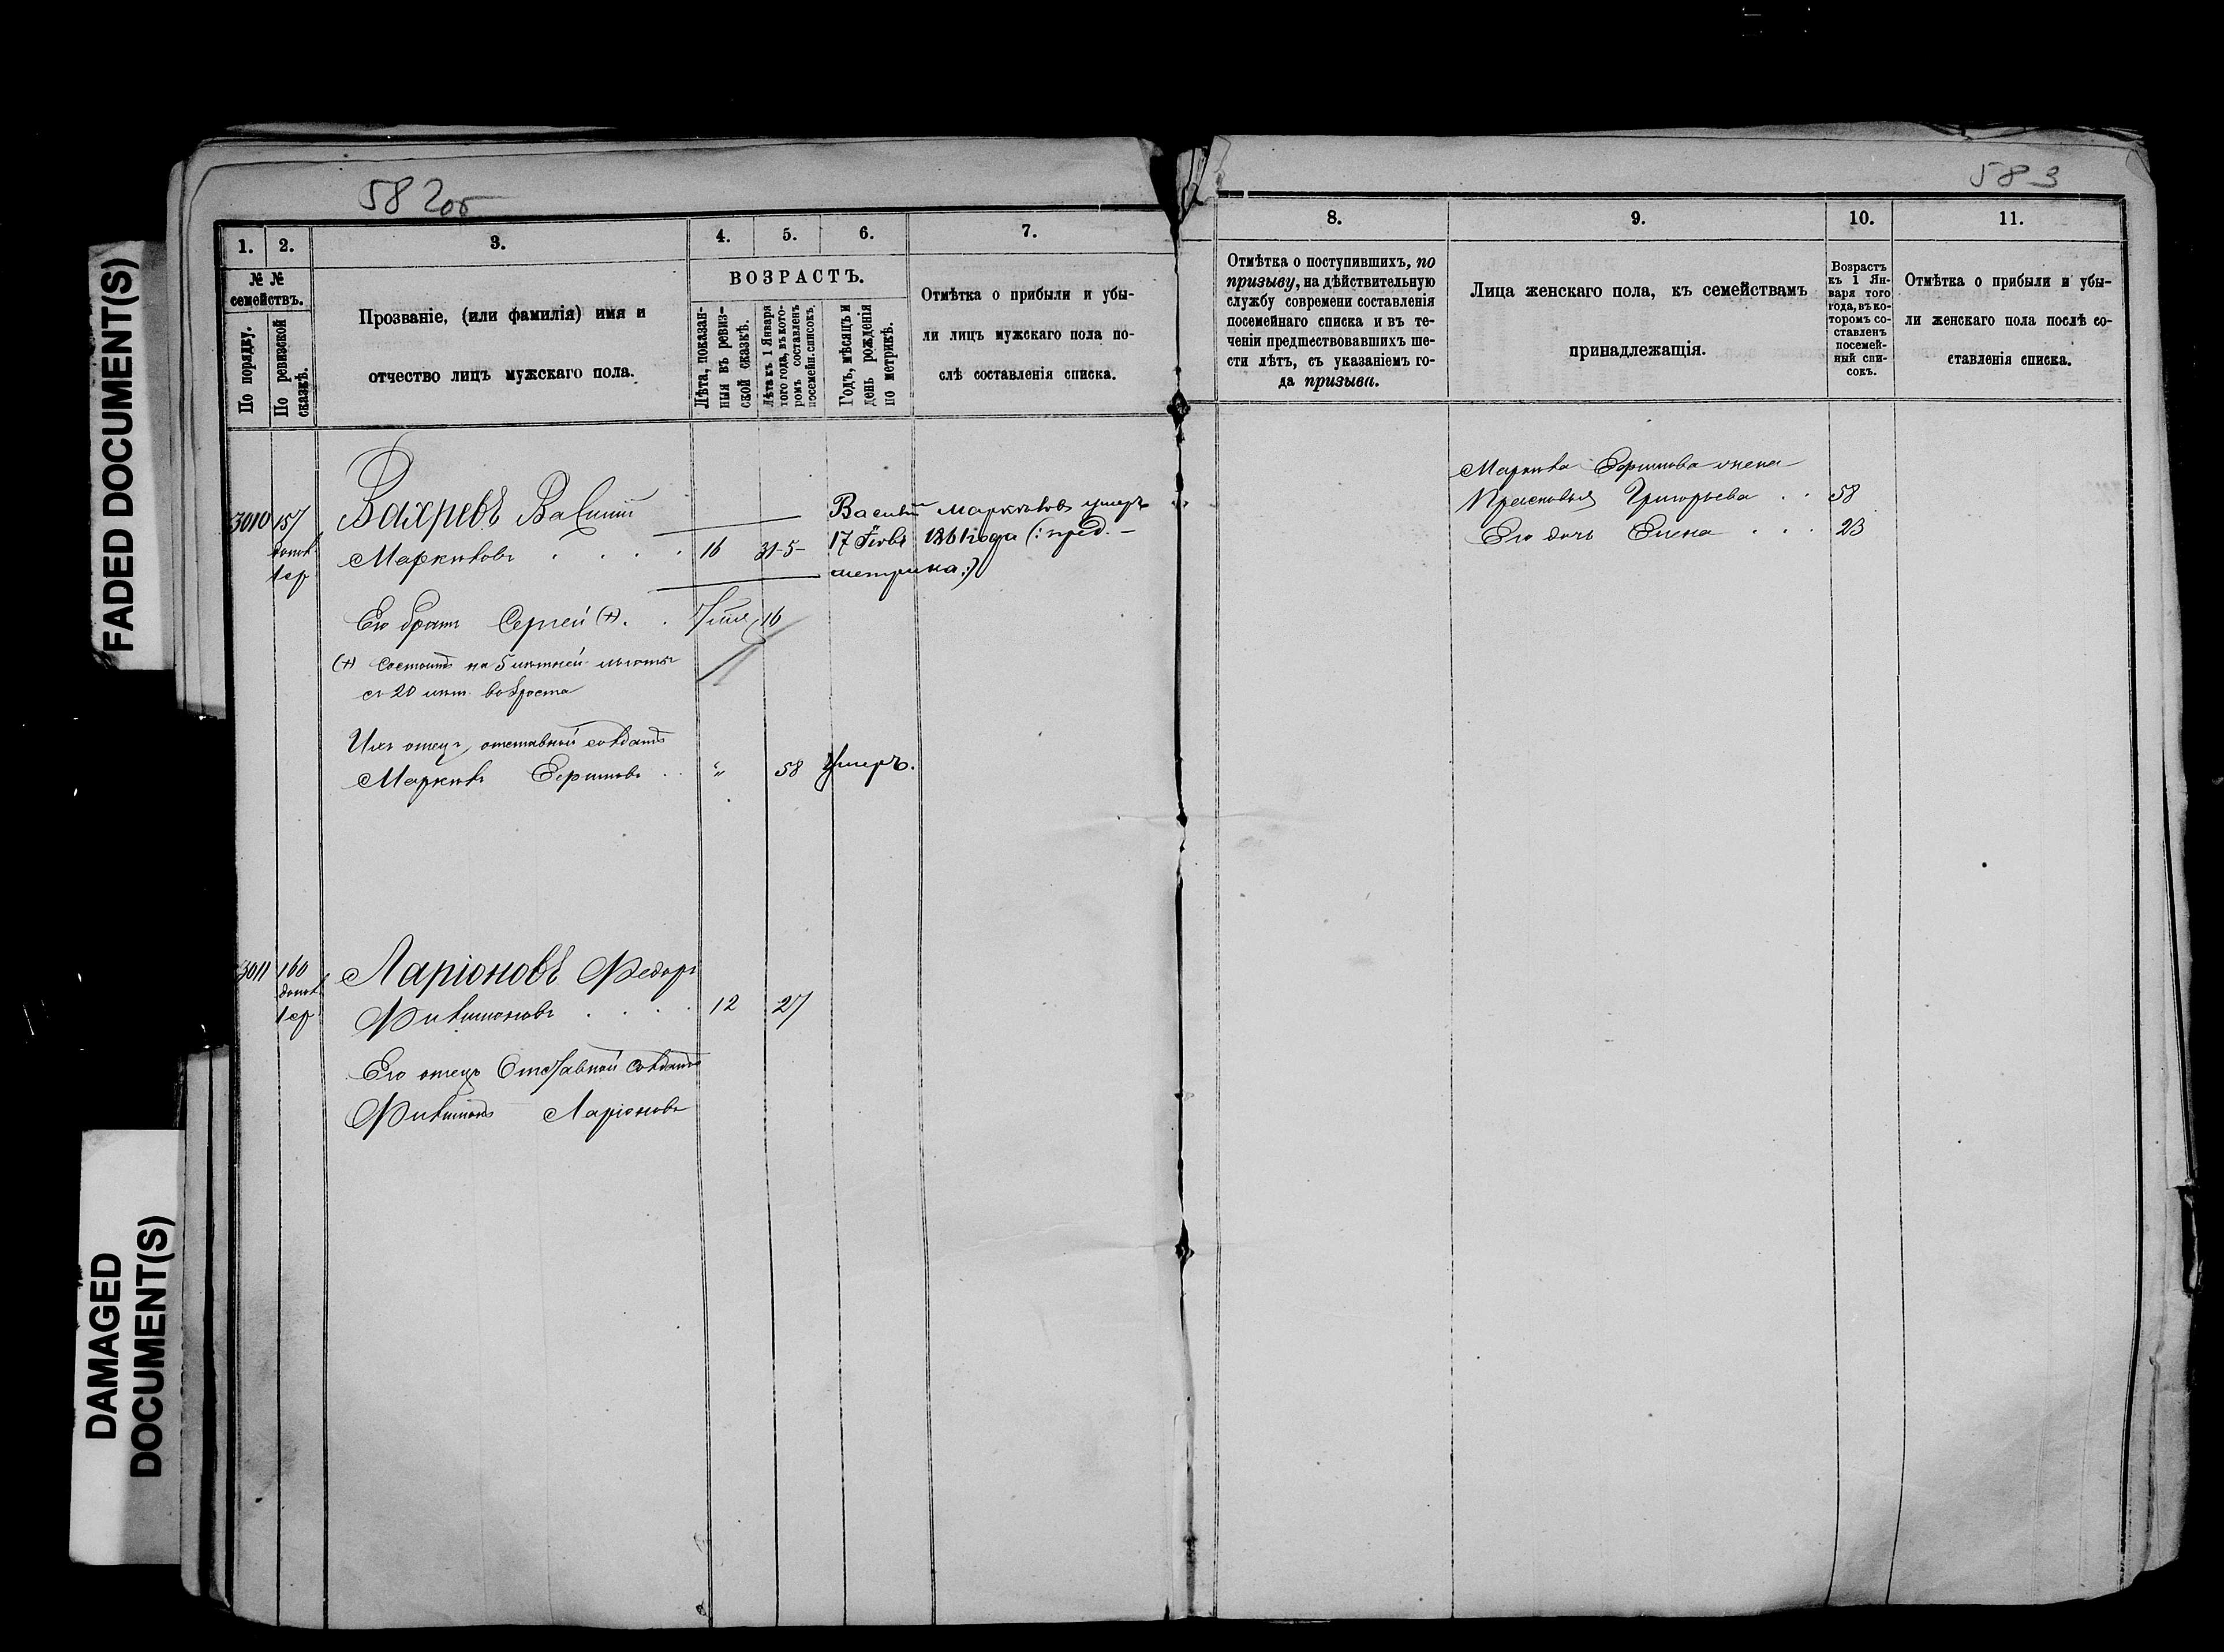 FADED DOCUMENT(S)
DAMAGED
DOCUMENT(S)
582об
583
1.
2.
3.
4.
5.
6.
7.
8.
9.
10.
11.
№ №
семействъ.
По порядку.
По ревизской
сказкѣ.
Прозваніе, (или фамилія) имя и
отчество лицъ мужскаго пола.
ВОЗРАСТЪ.
Лѣта, показан-
ныя въ ревиз-
ской сказкѣ.
Лѣта къ 1 Января
того года, въ кото-
ромъ составленъ
посемейн. списокъ.
Годъ, мѣсяцъ и
день рожденія
по метрикѣ.
Отмѣтка о прибыли и убы-
ли лицъ мужскаго пола по-
слѣ составленія списка.
Отмѣтка о поступившихъ, по
призыву, на дѣйствительную
службу современи составленія
посемейнаго списка и въ те-
ченіи предшествовавшихъ ше-
сти лѣтъ, съ указаніемъ го-
да призыва.
Лица женскаго пола, къ семействамъ
принадлежащія.
Возрастъ
къ 1 Ян-
варя того
года, въ ко-
торомъ со-
ставленъ
посемей-
ный спи-
сокъ.
Отмѣтка о прибыли и убы-
ли женскаго пола послѣ со-
ставленія списка.
3010 157 Вахревъ Василій
Василій Маркѣловъ умеръ
допол 1ср Маркѣловъ 16 31-5- 17 года (: пред.
метрика :)
Его братъ Сергей (+) 16
(+) Состоитъ на 5 лѣтней льготѣ
съ 20 лѣт. возроста
Ихъ отецъ, отставной солдатъ
Маркѣлъ " 58 Умеръ.
Маркѣла жена
Прасковья Григорьева 58
Его дочь Елена 23
3011 160 Ларіоновъ Федоръ
допол 1ср Филимоновъ 12 27
Его отецъ Отставной Солдатъ
Филимонъ Ларіоновъ